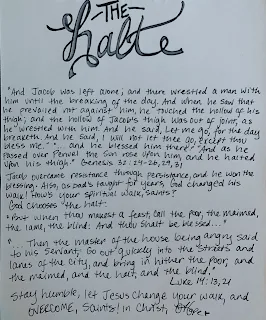 THE
Halt
"And Jacob was left alone; and there wrestled a man with
him until the breaking of the day. And when he saw that
he prevailed not against him, he touched the hollow of his
thigh; and the hollow of Jacob's thigh was out of joint, as
he wrestled with him. And he said, Let me go, for the day
breaketh. And he said, I will not let thee go, except thou
bless me." "... and he blessed him there." "And as he
passed over Penuel the sun rose upon him, and he halted
upon his thigh." Genesis 32:24-26, 29, 31
Jacob overcame resistance through persistance, and he won the
blessing. Also, as dad's taught for years, God changed his
walk! How's your spiritual walk, saints?
God chooses "the halt:
"But when thou makest a feast, call the poor, the maimed,
the lame, the blind: And thou shalt be blessed..."
"... Then the master of the house being angry said
to his servant, Go out quickly into the streets and
lanes of the city, and bring in hither the poor, and
the maimed, and the halt, and the blind."
Luke 14:13, 21
Stay humble, let Jesus change your walk, and
OVERCOME, Saints! In Christ,